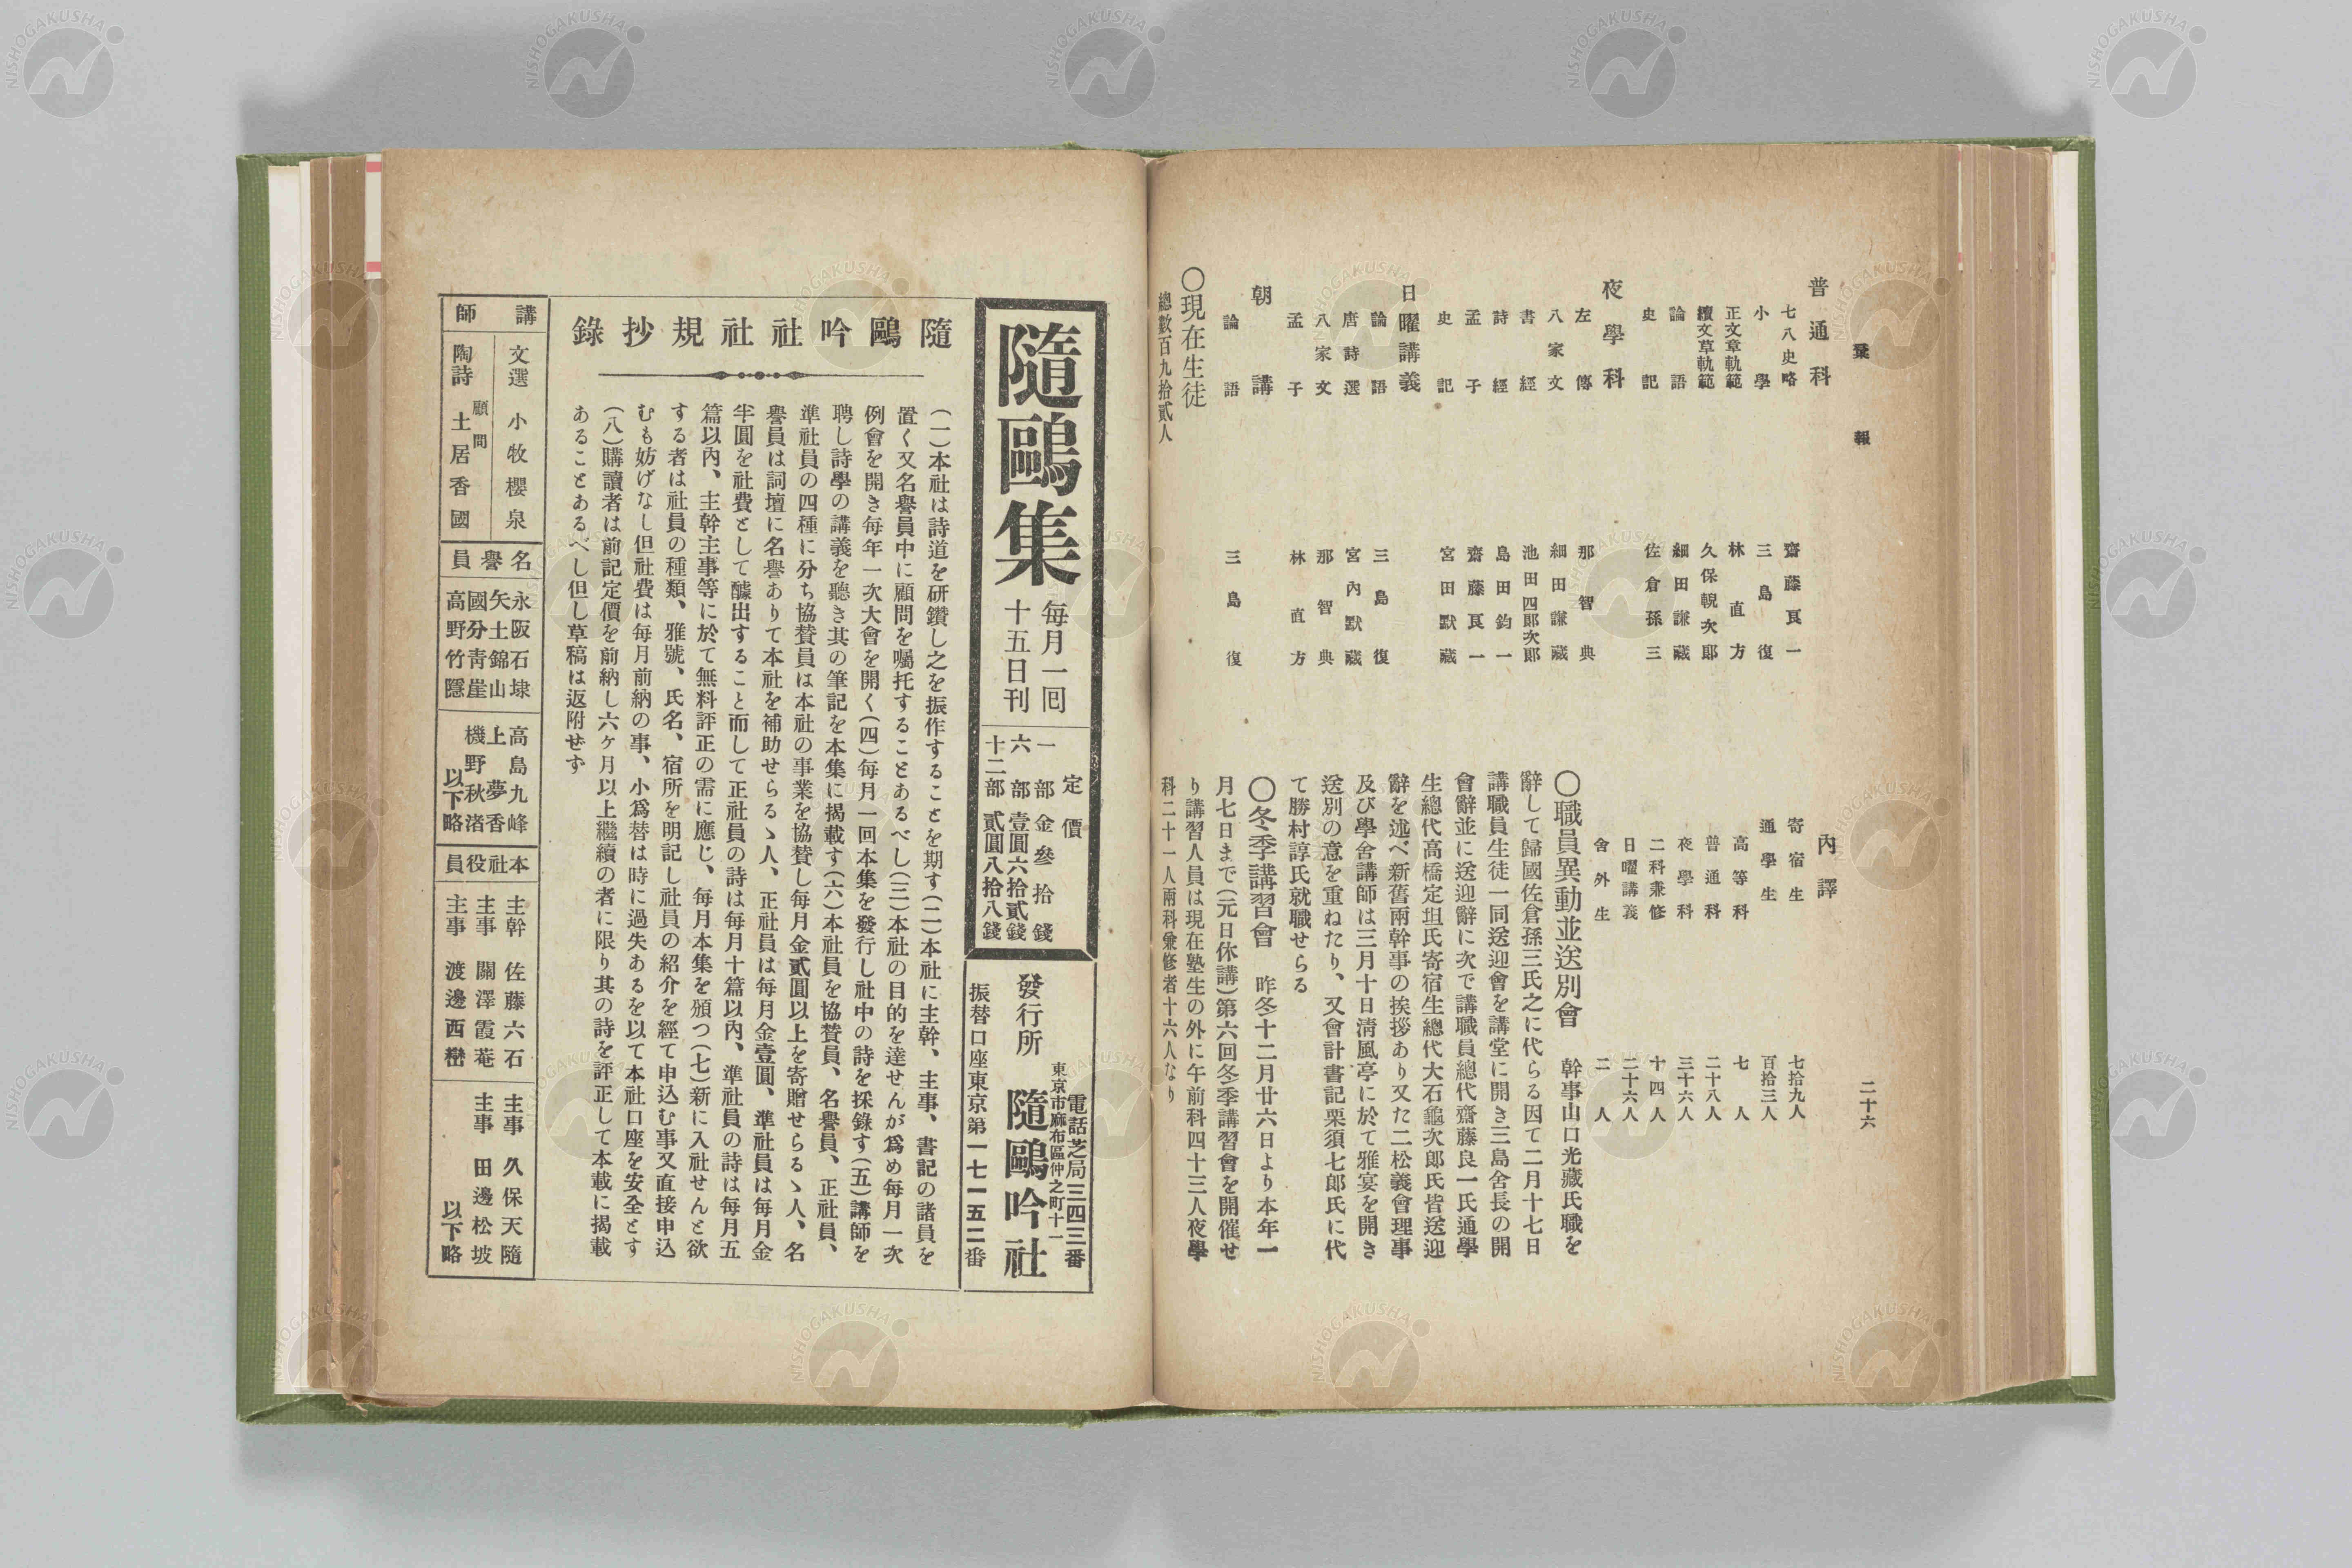 彙報
二十六
普通科
七八史略　齋藤良一
小學　三島復
正文章軌範　林直方
續文草軌範　久保輗次郎
論語　細田謙藏
史記　佐倉孫三
夜學科
左傳　那智典
八家文　細田謙藏
書經　池田四郎次郎
詩經　島田鈞一
孟子　齋藤良一
史記　宮田默藏
日曜講義
論語　三島復
唐詩選　宮內默藏
八家文　那智典
孟子　林直方
朝講
論語　三島復
〇現在生徒
總數百九拾貳人
內譯
寄宿生　七拾九人
通學生　百拾三人
高等科　七人
普通科　二十八人
夜學科　三十六人
二科兼修　十四人
日曜講義　二十六人
舍外生　二人
〇職員異動並送別會　幹事山口光藏氏職を
辭して歸國佐倉孫三氏之に代らる因て二月十七日
講職員生徒一同送迎會を講堂に開き三島舍長の開
會辭並に送迎辭に次で講職員總代齋藤良一氏通學
生總代高橋定坦氏寄宿生總代大石龜次郎氏皆送迎
辭を述べ新舊兩幹事の挨拶あり又た二松義會理事
及び學舍講師は三月十日淸風亭に於て雅宴を開き
送別の意を重ねたり、又會計書記栗須七郎氏に代
て勝村諄氏就職せらる
〇冬季講習會　昨冬十二月廿六日より本年一
月七日まで(元日休講)第六回冬季講習會を開催せ
り講習人員は現在塾生の外に午前科四十三人夜學
科二十一人兩科兼修者十六人なり
隨鷗集
每月一回
十五日刊
定價
一部　金參拾錢
六部　壹圓六拾貳錢
十二部　貳圓八拾八錢
電話芝局三四三番
東京市麻布區仲之町十一
發行所　隨鷗吟社
振替口座東京第一七一五二番
隨鷗吟社社規抄錄
(一)本社は詩道を硏鑽し之を振作することを期す(二)本社に主幹、主事、書記の諸員を
置く又名譽員中に顧問を囑托することあるべし(三)本社の目的を達せんが爲め每月一次
例會を開き每年一次大會を開く(四)每月一回本集を發行し社中の詩を採錄す(五)講師を
聘し詩學の講義を聽き其の筆記を本集に揭載す(六)本社員を協贊員、名譽員、正社員、
準社員の四種に分ち協贊員は本社の事業を協贊し每月金貳圓以上を寄贈せらるゝ人、名
譽員は詞壇に名譽ありて本社を補助せらるゝ人、正社員は每月金壹圓、準社員は每月金
半圓を社費として醵出すること而して正社員の詩は每月十篇以內、準社員の詩は每月五
篇以內、主幹主事等に於て無料評正の需に應じ、每月本集を頒つ(七)新に入社せんと欲
する者は社員の種類、雅號、氏名、宿所を明記し社員の紹介を經て申込む事又直接申込
むも妨げなし但社費は每月前納の事、小爲替は時に過失あるを以て本社口座を安全とす
(八)購讀者は前記定價を前納し六ケ月以上繼續の者に限り其の詩を評正して本載に揭載
あることあるべし但し草稿は返附せず
講師
文選　小牧櫻泉
陶詩　顧問　土居香國
名譽員
永阪石埭
矢土錦山
國分靑崖
高野竹隱
高島九峰
上夢香
機野秋渚
以下略
本社役員
主幹　佐藤六石
主事　關澤霞菴
主事　渡邊西巒
主事　久保天隨
主事　田邊松坡
以下略
NISHOGAKUSHA